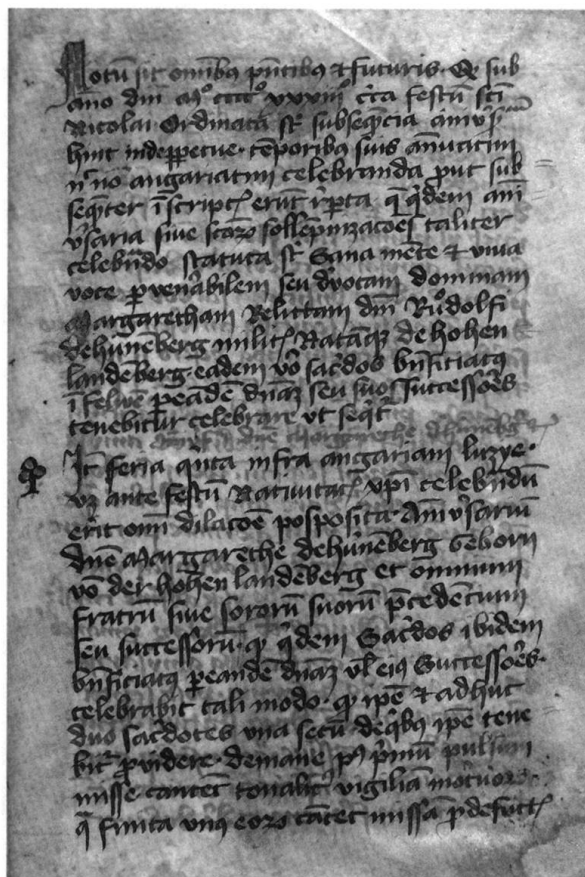 Notū sit omībus pn̄tibus et futuris. Qz sub
año dm̄ Mº ccccº xxxiijº cīca festum sc̄i
Nicolai. Ordinata st̄ subseq̄ncia
hinc inde perpetue temporibus suis annuatim
celebranda prout sub
seq̄nter īscript erūt
v̓saria sive sollempnizacōēs taliter
celebrādo statuta st̄ Sana mēte et viva
voce p̱ venerabilem seu devotam dominam
Margaretham Relictam dm̄ Rudolfi
de hūnēberg milit̄ Natamqz de hohen
landēberg eadem vō sac̓dos bn̄ficiatus
ī felwē p̱ eandē dn̄az seu suos successōres
tenebitur celebrare vt seqr̄
Itē feria q̓nta infra angariam luzye.
vz ante festū Nativitat̄ xp̄i celebrādū
erit omī dilacōē posposita. Anīv̓sariū
dn̄ē Margarethe de hūnēberg gēborn̄
vō der hohen landēberg et omnium
fratrū sive sororū suorū p̄cedēcium
seu successorū. qz q̓dem Sac̓dos ibidem
bn̄ficiatus p̱ eandē dn̄az vl̄ eius Successōres.
celebrabit tali modo. qz ip̄e et adhuc
duo sac̓dotes vna secū. de q̓bus ip̄e tene
bit̄ providere. demane pꝰ p̓mū pulsum
misse cantēt tonalit̄ vigiliā mortuorꝝ.
q̄ finita vnus eorꝝ cātet missā p̱ defūct̄